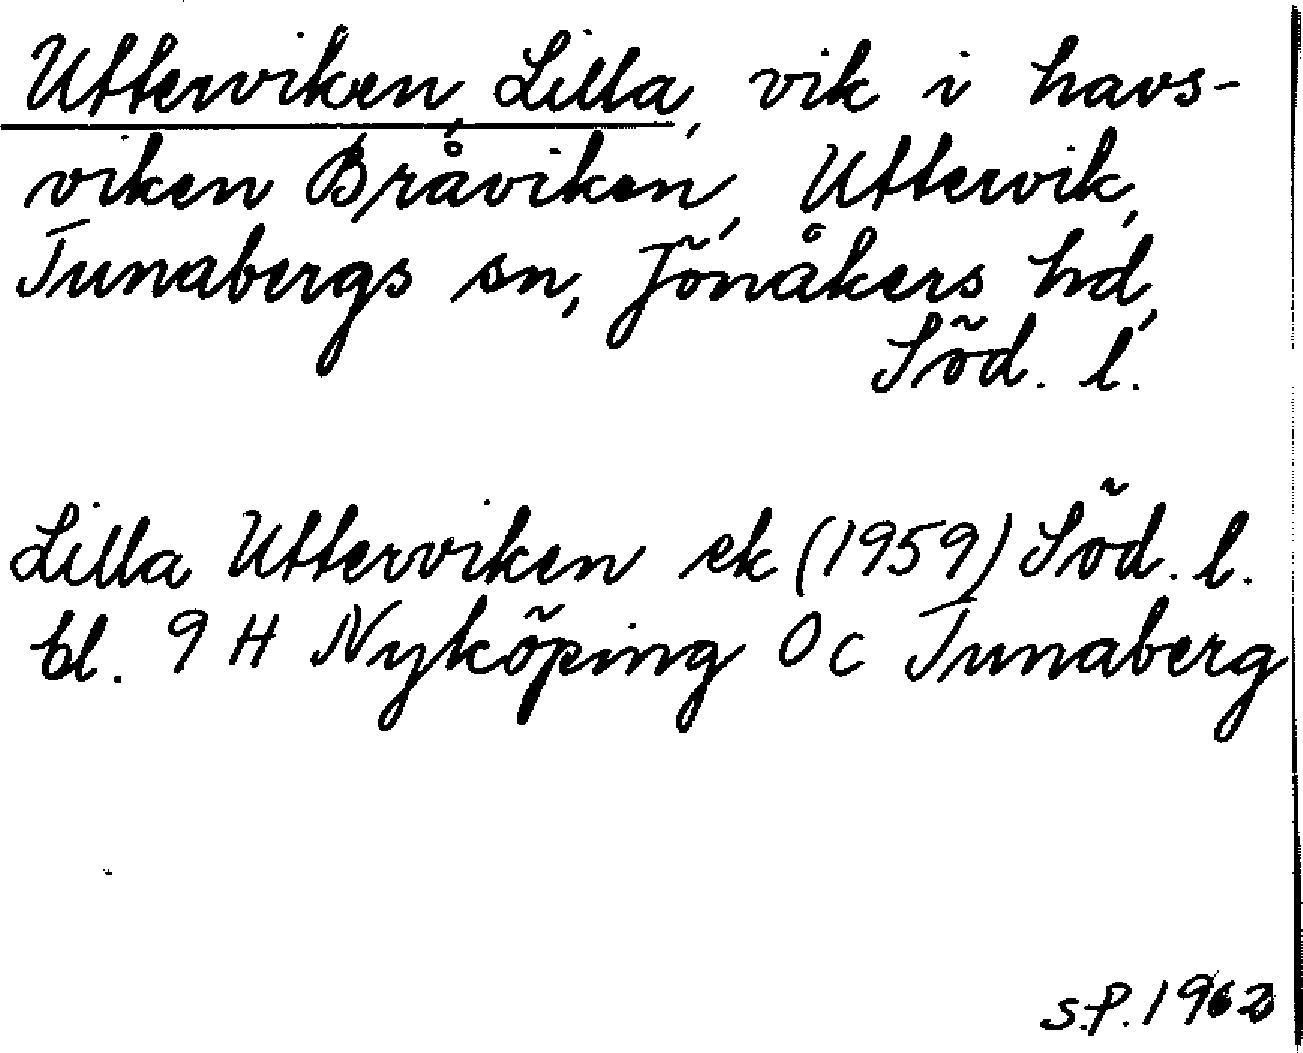 Utterviken, Lilla, vik i havs-
viken Bråviken, Uttervik,
Tunabergs sn, Jönåkers hd,
Söd. l.
Lilla Utterviken ek (1959) Söd. l.
bl. 9 H Nyköping 0 c Tunaberg
S.P. 1962